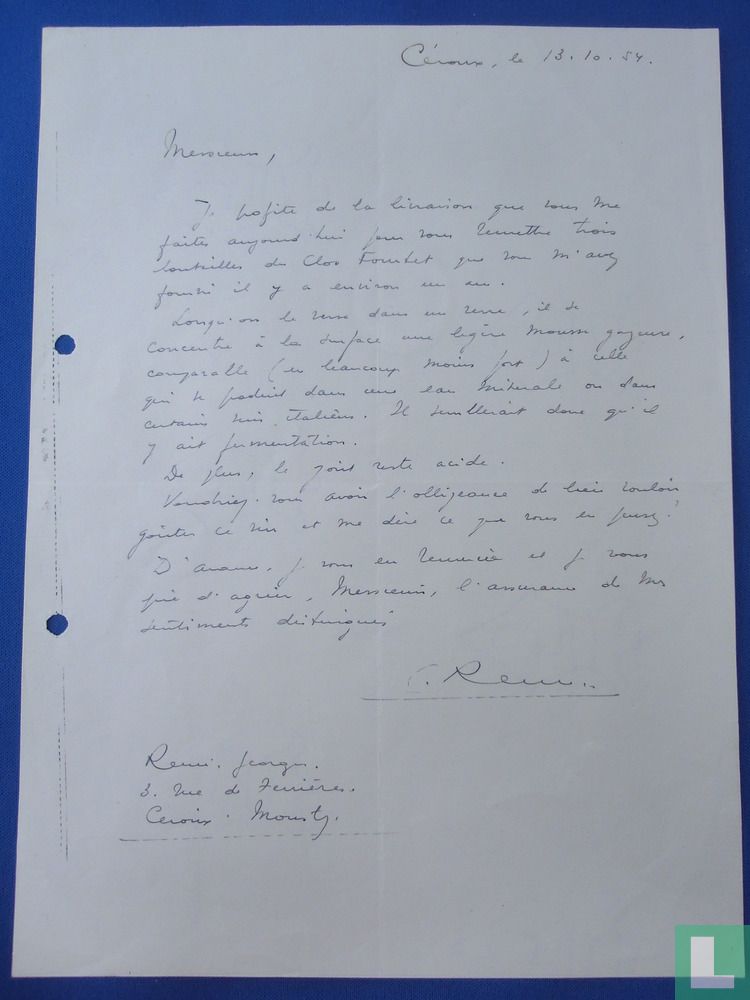 Céroux, le 13.10.54.
Messieurs,
Je profite de la livraison que vous me
faites aujourd'hui pour vous remettre trois
bouteilles du Clos Fourtet que vous m'avez
fourni il y a environ un an.
Lorsqu'on le verse dans un verre, il se
concentre à la surface une légère mousse gazeuse,
comparable (en beaucoup moins fort) à celle
qui se produit dans une eau minérale ou dans
certains vins italiens. Il semblerait donc qu'il
y ait fermentation.
De plus, le goût reste acide.
Voudriez-vous avoir l'obligeance de bien vouloir
goûter ce vin et me dire ce que vous en pensez?
D'avance, je vous en remercie et je vous
prie d'agréer, Messieurs, l'assurance de mes
sentiments distingués
G. Remi.
Remi. Georges.
3. rue de Ferrières.
Céroux-Mousty.
L